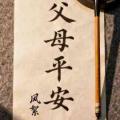 父母平安
風絮